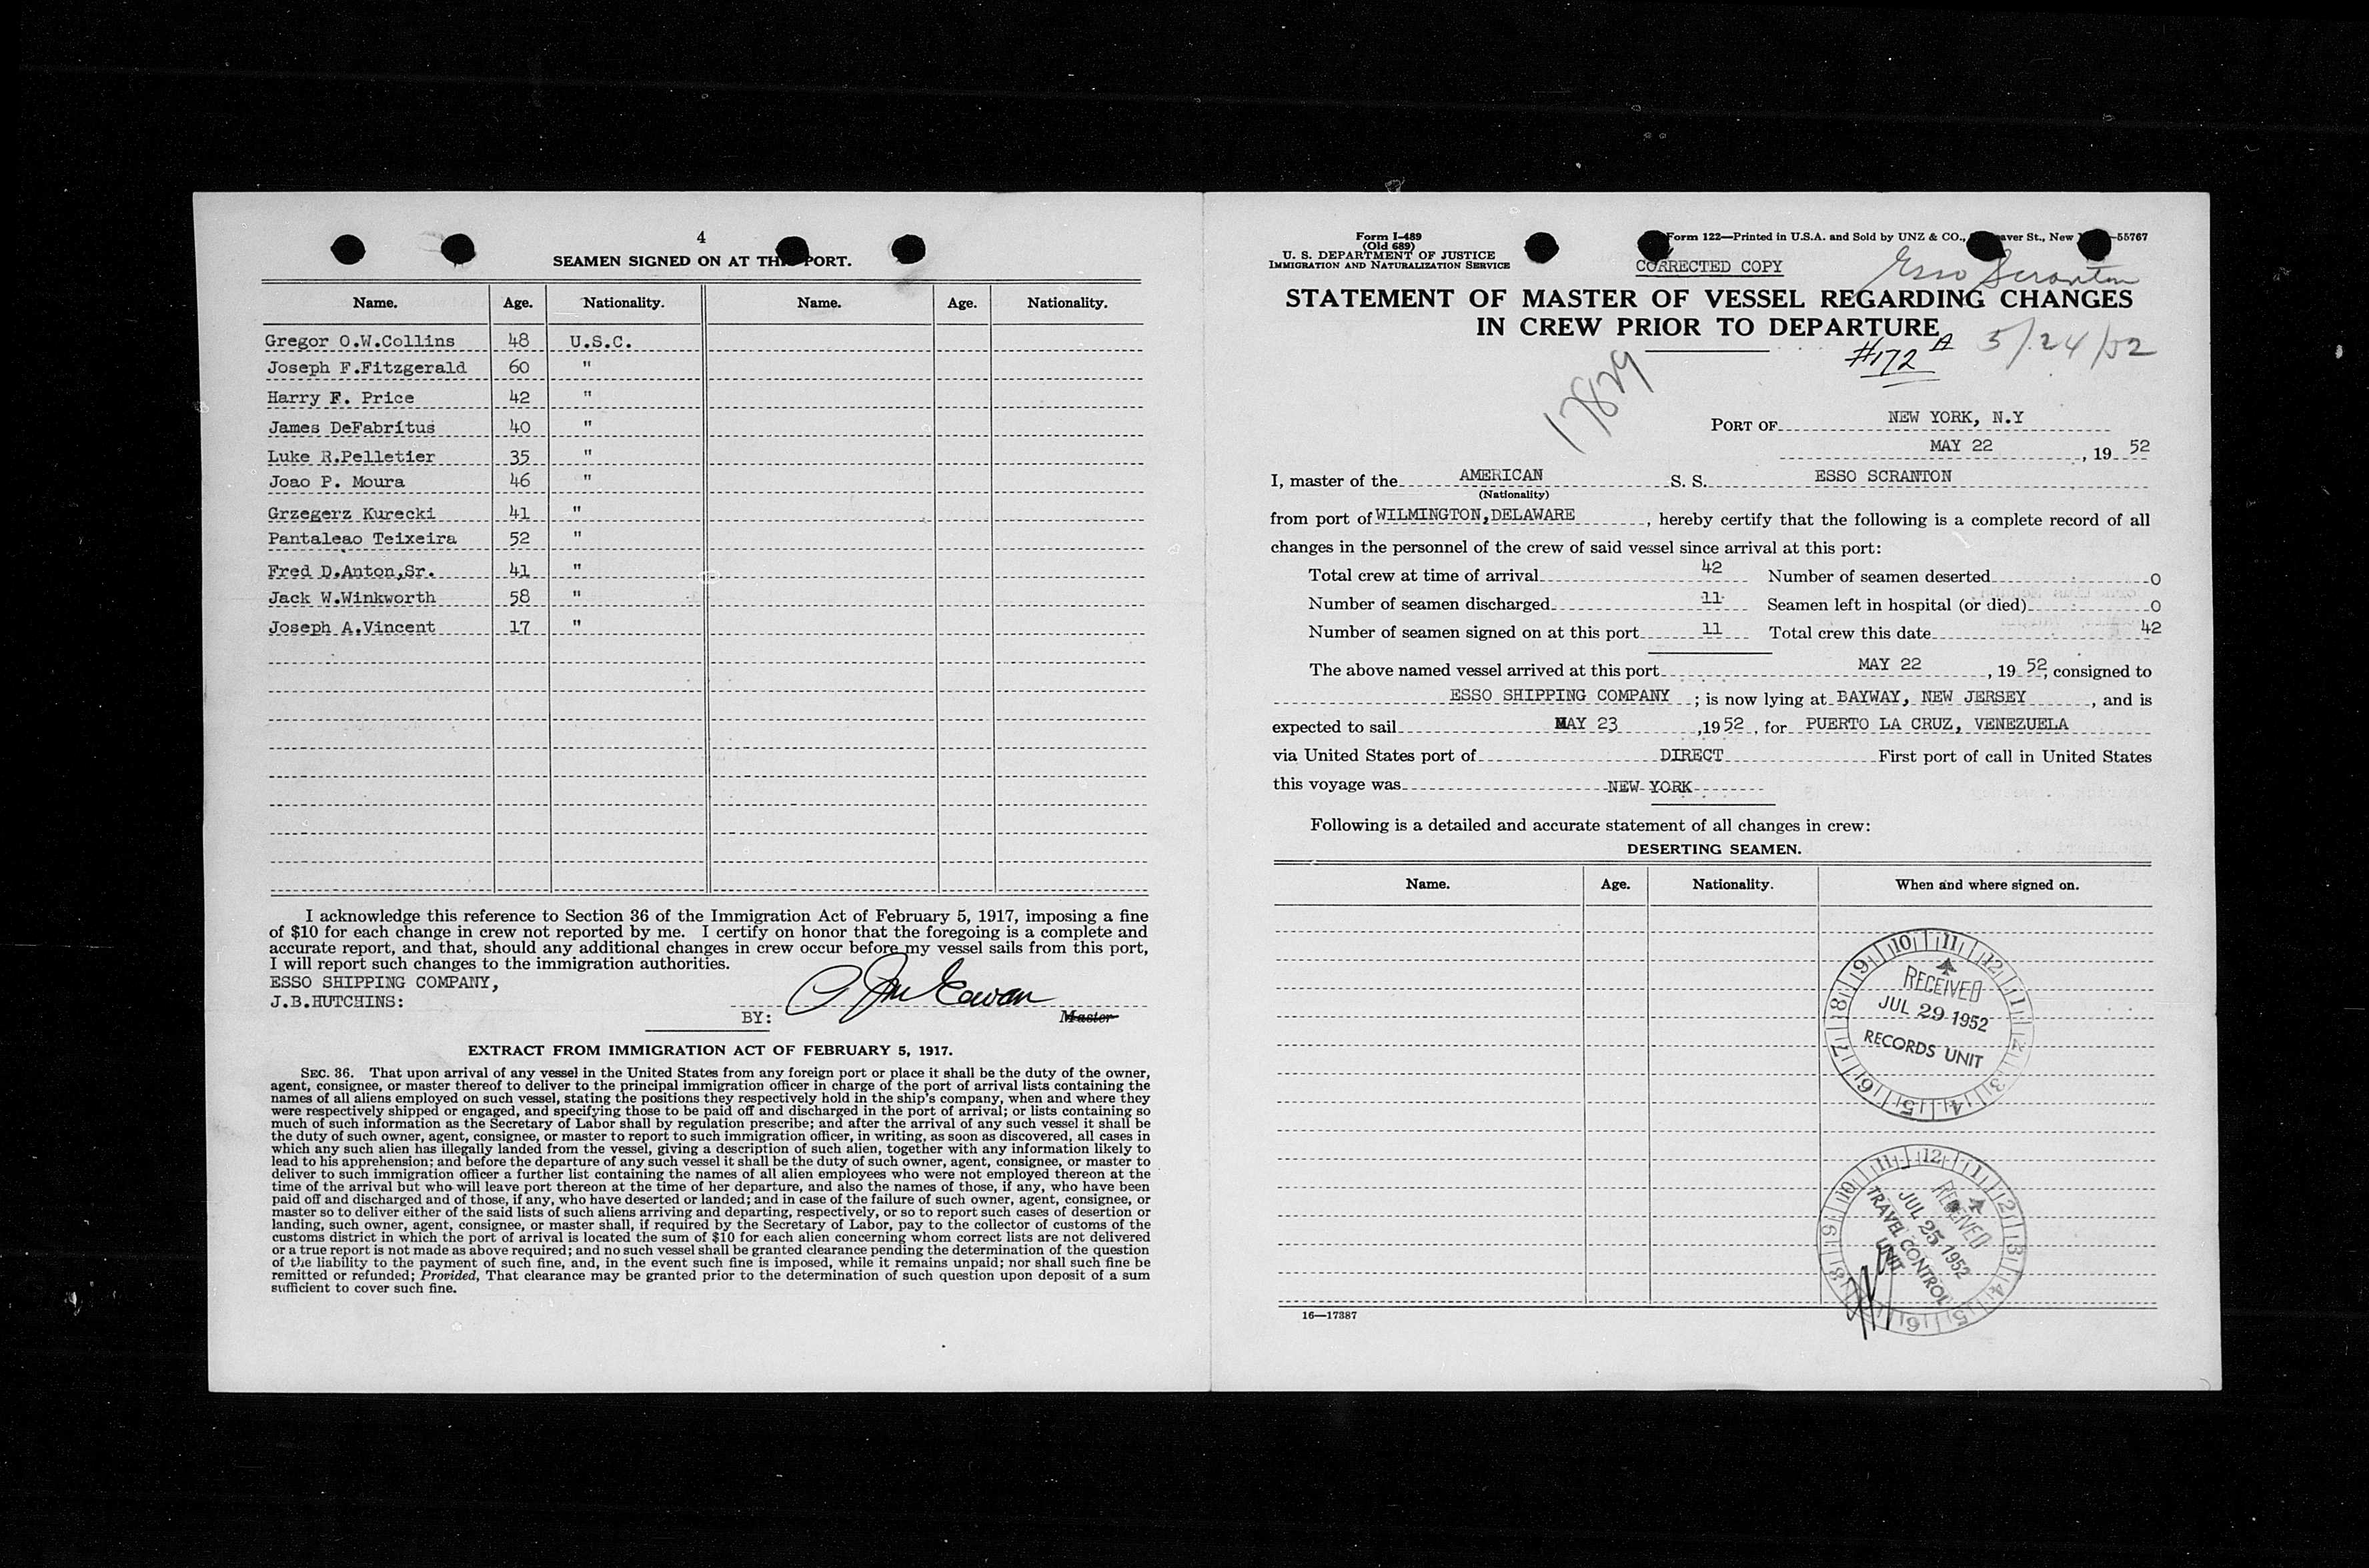 4
SEAMEN SIGNED ON AT THIS PORT.
Name. Age. Nationality. Name. Age. Nationality.
Gregor O.W.Collins 48 U.S.C.
Joseph F.Fitzgerald 60 "
Harry F. Price 42 "
James DeFabritus 40 "
Luke R.Pelletier 35 "
Joao P. Moura 46 "
Grzegerz Kurecki 41 "
Pantaleao Teixeira 52 "
Fred D.Anton,Sr. 41 "
Jack W.Winkworth 58 "
Joseph A.Vincent 17 "
I acknowledge this reference to Section 36 of the Immigration Act of February 5, 1917, imposing a fine
of $10 for each change in crew not reported by me. I certify on honor that the foregoing is a complete and
accurate report, and that, should any additional changes in crew occur before my vessel sails from this port,
I will report such changes to the immigration authorities.
ESSO SHIPPING COMPANY,
J.B.HUTCHINS:
BY: Master
EXTRACT FROM IMMIGRATION ACT OF FEBRUARY 5, 1917.
SEC. 36. That upon arrival of any vessel in the United States from any foreign port or place it shall be the duty of the owner,
agent, consignee, or master thereof to deliver to the principal immigration officer in charge of the port of arrival lists containing the
names of all aliens employed on such vessel, stating the positions they respectively hold in the ship's company, when and where they
were respectively shipped or engaged, and specifying those to be paid off and discharged in the port of arrival; or lists containing so
much of such information as the Secretary of Labor shall by regulation prescribe; and after the arrival of any such vessel it shall be
the duty of such owner, agent, consignee, or master to report to such immigration officer, in writing, as soon as discovered, all cases in
which any such alien has illegally landed from the vessel, giving a description of such alien, together with any information likely to
lead to his apprehension; and before the departure of any such vessel it shall be the duty of such owner, agent, consignee, or master to
deliver to such immigration officer a further list containing the names of all alien employees who were not employed thereon at the
time of the arrival but who will leave port thereon at the time of her departure, and also the names of those, if any, who have been
paid off and discharged and of those, if any, who have deserted or landed; and in case of the failure of such owner, agent, consignee, or
master so to deliver either of the said lists of such aliens arriving and departing, respectively, or so to report such cases of desertion or
landing, such owner, agent, consignee, or master shall, if required by the Secretary of Labor, pay to the collector of customs of the
customs district in which the port of arrival is located the sum of $10 for each alien concerning whom correct lists are not delivered
or a true report is not made as above required; and no such vessel shall be granted clearance pending the determination of the question
of the liability to the payment of such fine, and, in the event such fine is imposed, while it remains unpaid; nor shall such fine be
remitted or refunded; Provided, That clearance may be granted prior to the determination of such question upon deposit of a sum
sufficient to cover such fine.
Form I-489
(Old 689)
U. S. DEPARTMENT OF JUSTICE
IMMIGRATION AND NATURALIZATION SERVICE
Form 122—Printed in U.S.A. and Sold by UNZ & CO., aver St., New -55767
CORRECTED COPY
Esso Scranton
STATEMENT OF MASTER OF VESSEL REGARDING CHANGES
IN CREW PRIOR TO DEPARTURE
#172 A 5/24/52
17829
PORT OF NEW YORK, N.Y
MAY 22, 19 52
I, master of the AMERICAN S. S. ESSO SCRANTON
(Nationality)
from port of WILMINGTON,DELAWARE, hereby certify that the following is a complete record of all
changes in the personnel of the crew of said vessel since arrival at this port:
Total crew at time of arrival 42 Number of seamen deserted 0
Number of seamen discharged 11 Seamen left in hospital (or died) 0
Number of seamen signed on at this port 11 Total crew this date 42
The above named vessel arrived at this port MAY 22, 19 52, consigned to
ESSO SHIPPING COMPANY ; is now lying at BAYWAY, NEW JERSEY, and is
expected to sail MAY 23 ,19 52, for PUERTO LA CRUZ, VENEZUELA
via United States port of DIRECT First port of call in United States
this voyage was NEW YORK
Following is a detailed and accurate statement of all changes in crew:
DESERTING SEAMEN.
Name. Age. Nationality. When and where signed on.
10 11 12 1 2 3 4 5 6 7 8 9
RECEIVED
JUL 29 1952
RECORDS UNIT
11 12 1 2 3 4 5 6 8 9 10
RECEIVED
JUL 25 1952
TRAVEL CONTROL
UNIT
16—17387